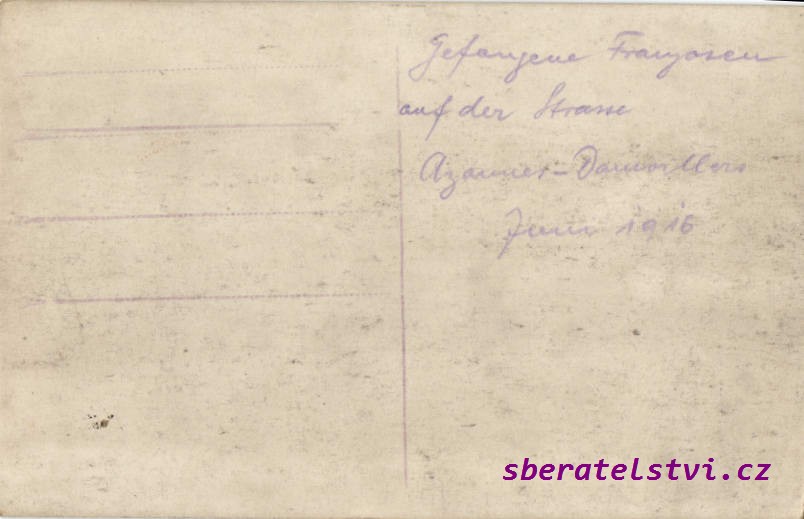 Gefangene Franzosen
auf der Strasse
Azannes-Damvillers
Juni 1916
sberatelstvi.cz